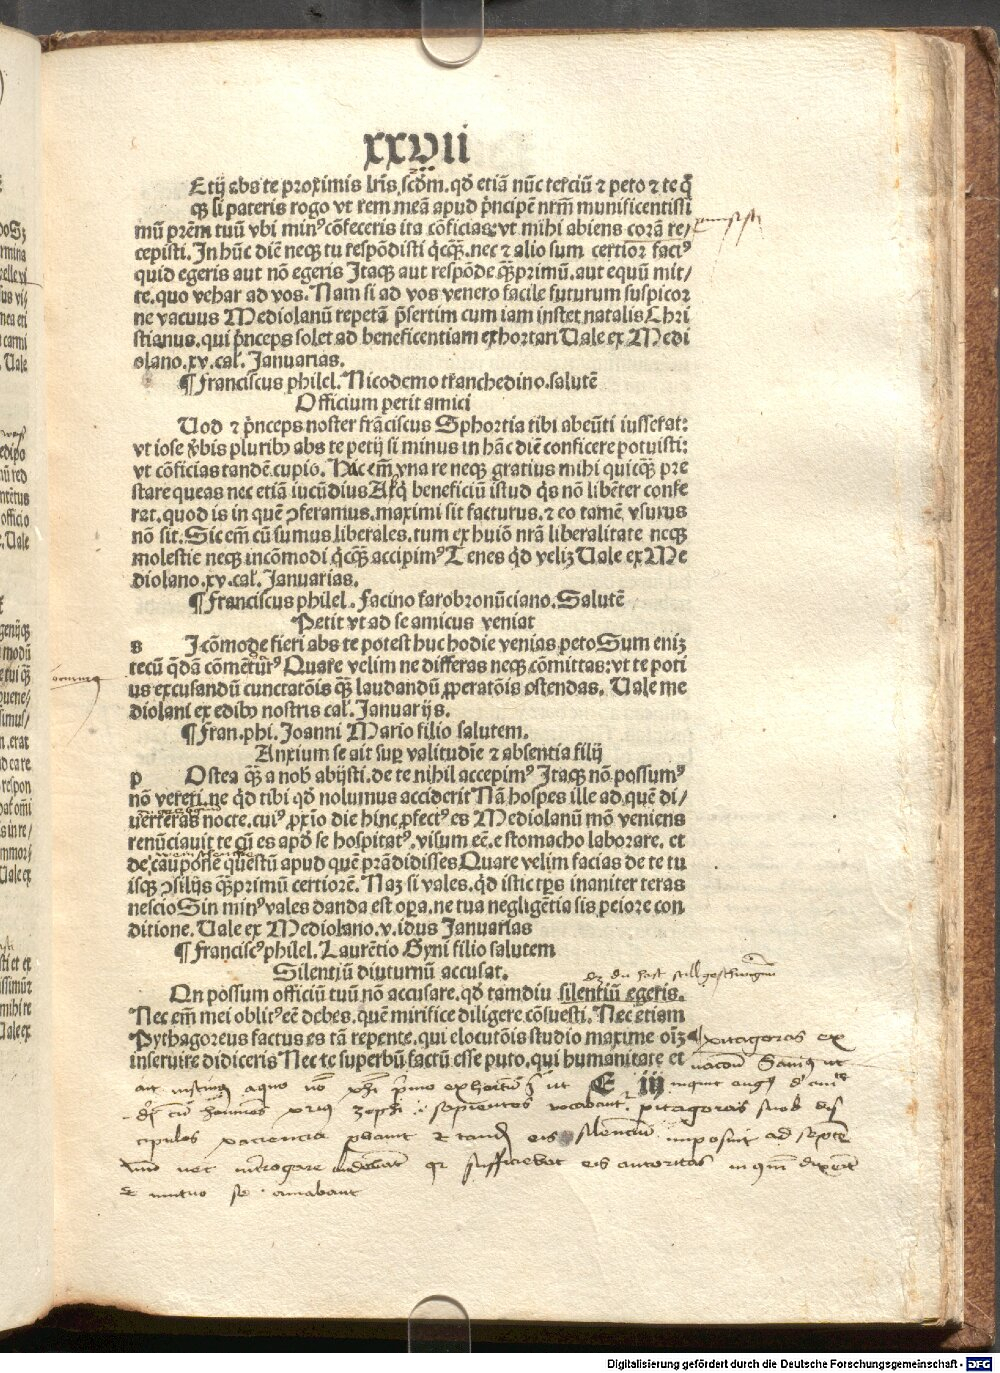 xxvii
Etij abs te proximis lr̃is. scd̃m. qđ etiã nũc terciũ ⁊ peto ⁊ te q̃
q̃ si pateris rogo vt rem meã apud p̃ncipẽ nr̃m munificentissi
mũ prẽm tuũ vbi min⁹ cõfeceris ita cõficias: vt mihi abiens corã re⸗
cepisti. In hũc diẽ neqꝫ tu respõdisti q̃cqꝫ. nec ⁊ alio sum certior fact⁹
quid egeris aut nõ egeris Itaqꝫ aut respõde q̃ꝫprimũ. aut equũ mit⸗
te. quo vehar ad vos. Nam si ad vos venero facile futurum suspicor
ne vacuus Mediolanũ repetã p̃sertim cum iam instet natalis Chri
stianus. qui p̃nceps solet ad beneficentiam exhortari Uale ex Medi
olano. xv. cal. Januarias.
¶ Franciscus philel. Nicodemo tranchedino. salutẽ
Officium petit amici
Uod ⁊ p̃nceps noster frãciscus Sphortia tibi abeũti iusserat:
vt iose ṽbis plurib⁹ abs te petij si minus in hãc diẽ conficere potuisti:
vt cõficias tandẽ cupio. Hac em̃ vna re neqꝫ gratius mihi quicq̃ꝫ pre
stare queas nec etiã iucũdius Atq̃ beneficiũ istud q̃s nõ libẽter confe
rat. quod is in quẽ ꝯferamus. maximi sit facturus. ⁊ eo tamẽ vsurus
nõ sit. Sic em̃ cũ sumus liberales. tum ex huiõi nr̃a liberalitate neqꝫ
molestie neqꝫ incõmodi q̃cqꝫ accipim⁹ Tenes qđ veliꝫ Uale ex Me
diolano. xv. cal. Januarias.
¶ Franciscus philel. Facino farobronũciano. Salutẽ
Petit vt ad se amicus veniat
s I cõmode fieri abs te potest huc hodie venias peto Sum eniꝫ
tecũ q̃dã cõmẽtũr⁹ Quare velim ne differas neqꝫ cõmittas: vt te poti
us excusandũ cunctatõis q̃ꝫ laudandũ ꝓperatõis ostendas. Uale me
diolani ex edib⁹ nostris cal. Januarijs.
¶ Fran. phi. Joanni Mario filio salutem.
Anxium se ait sup valitudiẽ ⁊ absentia filij
p Ostea q̃ꝫ a nob̃ abijsti. de te nihil accepim⁹ Itaqꝫ nõ possum⁹
nõ vereri. ne qđ tibi qđ nolumus acciderit Nã hospes ille ad quẽ di⸗
uerteras nocte. cui⁹ ꝓxĩo die hinc ꝓfect⁹ es Mediolanũ mõ veniens
renũciauit te q̃ es apđ se hospitat⁹. visum eẽ. e stomacho laborare. et
de caupone questũ apud quẽ prãdidisses Quare velim facias de te tu
isqꝫ ꝯsilijs q̃ꝫprimũ certiorẽ. Naꝫ si vales. qđ istic tp̃s inaniter teras
nescio Sin min⁹ vales danda est opa. ne tua negligẽtia sis peiore con
ditione. Uale ex Mediolano. v. idus Januarias
¶ Francisc⁹ philel. Laurẽtio Gyni filio salutem
Silentiũ diuturnũ accusat.
du hast still geschwigen
On possum officiũ tuũ nõ accusare. qđ tamdiu silentiũ egeris.
Nec em̃ mei oblit⁹ eẽ debes. quẽ mirifice diligere cõsuesti. Nec etiam
Pythagoreus factus es tã repente. qui elocutõis studio maxime oĩꝫ
inseruire didiceris Nec te superbũ factũ esse puto. qui humanitate et
E iij
pitagoras ex
sapientes vocabant pitagoras suos dis
cipulos et tandẽ eis silenciũ imposuit ad septẽ
nec interrogare quia sufficiebat eis autoritas
⁊ mutuo se amabant
Digitalisierung gefördert durch die Deutsche Forschungsgemeinschaft - DFG